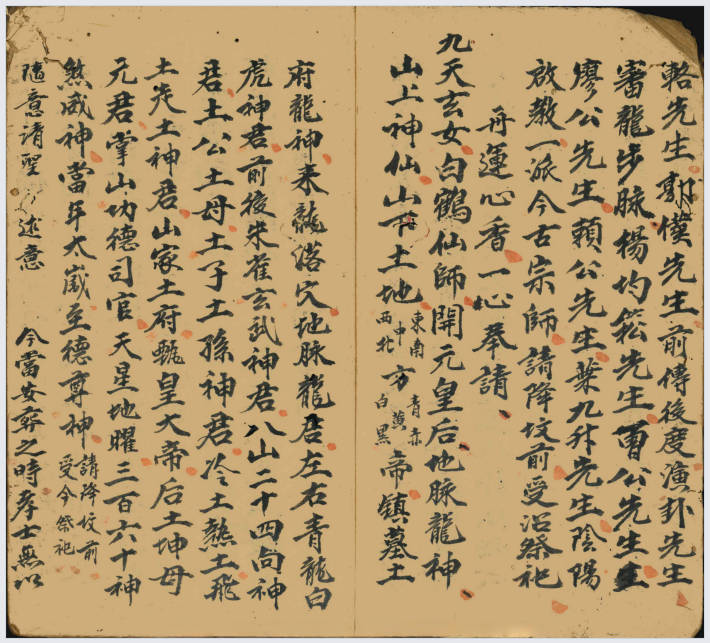 輅先生郭僕先生前傳後度演卦先生
審龍步脉楊灼菘先生曾公先生
廖公先生賴公先生葉九升先生陰陽
啟教一派今古宗師請降坟前受沾祭祀
再運心香一心奉請
九天玄女白鶴仙師開元皇后地脉龍神
山上神仙山下土地東南中西北方青赤黃白黑帝鎮墓土
府龍神來龍落穴地脉龍君左右青龍白
虎神君前後朱雀玄武神君八山二十四向神
君土公土母土子土孫神君冷土熱土飛
土走土神君山家土府甄皇大帝后土坤母
元君掌山功德司官天星地曜三百六十神
煞威神當年太歲至德尊神請降坟前受今祭祀
隨意請聖 述意 今當安葬之時孝士無以